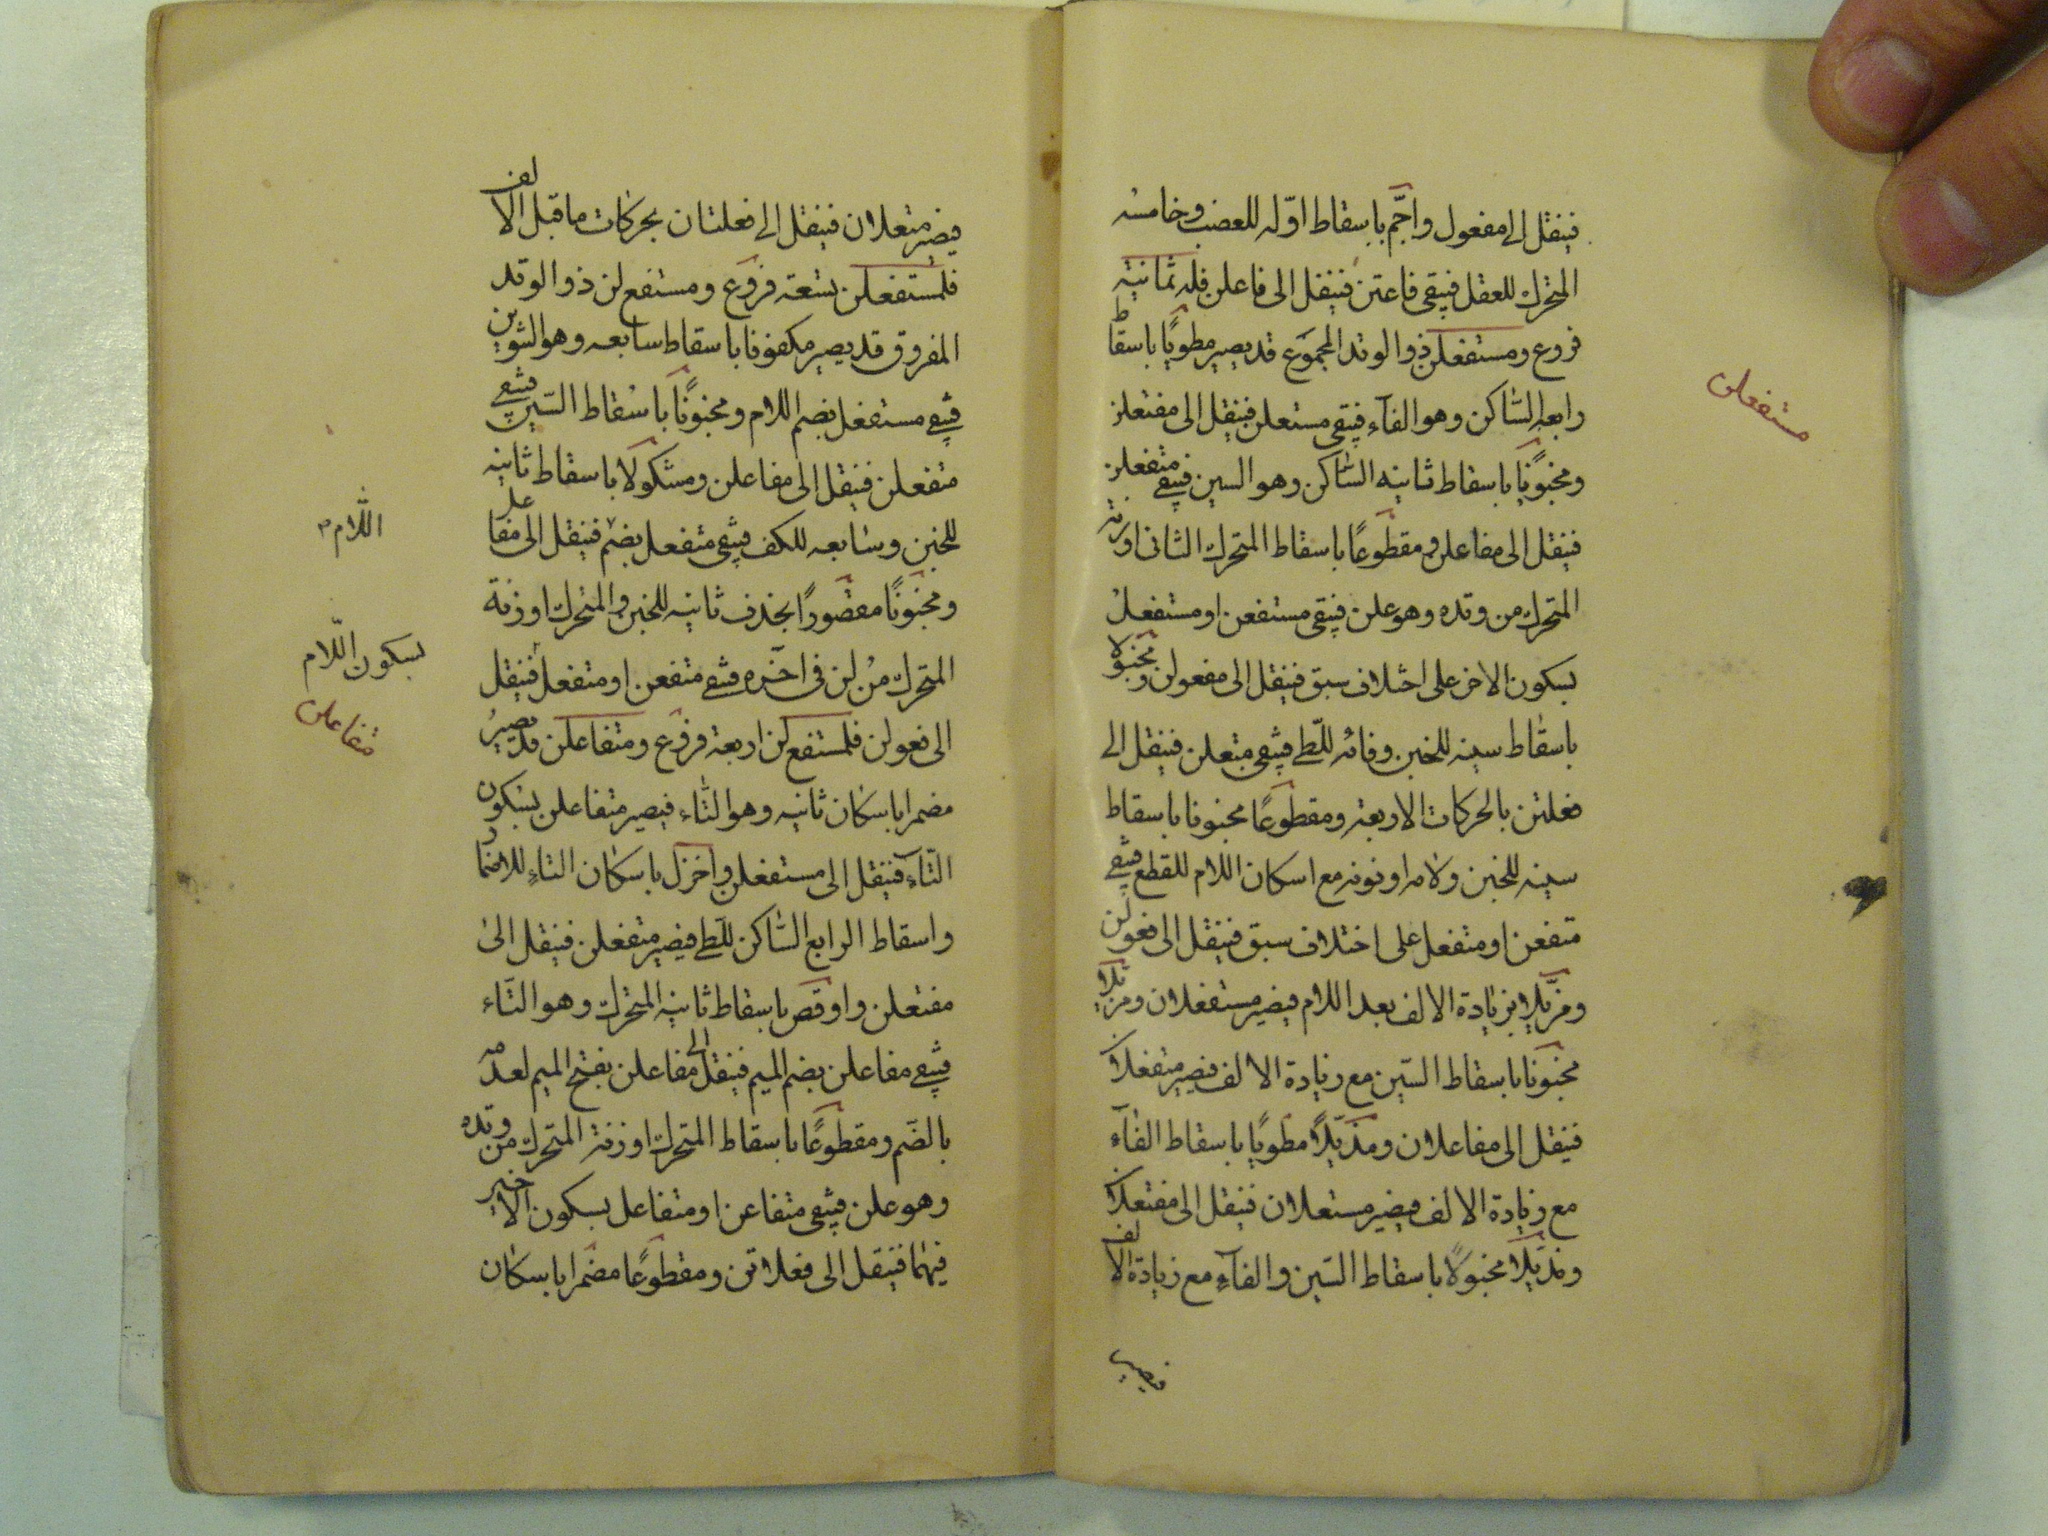 فينقل الى مفعول واجمّ باسقاط اوّله للعضب وخامسه
المتحرك للعقل فيبقى فاعتن فينقل الى فاعلن فله ثمانية
فروع ومستفعلن ذوالوتد المجموع قد يصير مطويًا باسقاط
رابعه الساكن وهو الفآء فيبقى مستعلن فينقل الى مفتعلن
ومخبونًا باسقاط ثانيه الساكن وهو السين فيبقى متفعلن
فينقل الى مفاعلن ومقطوعًا باسقاط المتحرك الثانى او زنة
المتحرك من وتده وهو علن فيبقى مستفعن او مستفعلْ
بسكون الاخر على اختلاف سبق فينقل الى مفعولن ومخبولا
باسقاط سينه للخبن وفائه للطّى فيبقى متعلن فينقل الى
فعلتن بالحركات الاربعة ومقطوعًا مخبونا باسقاط
سينه للخبن ولامه او نونه مع اسكان اللام للقطع فيبقى
متفعن او متفعل على اختلاف سبق فينقل الى فعولن
ومذيّلا بزيادة الالف بعد اللام فيصير مستفعلان ومذيّلا
مخبونًا باسقاط السّين مع زيادة الالف فيصير متفعلان
فينقل الى مفاعلان ومذيّلًا مطويًا باسقاط الفآء
مع زيادة الالف فيصير مستعلان فينقل الى مفتعلان
ومذيّلًا مخبولًا باسقاط السّين والفآء مع زيادة الالف
فيصير
مستفعلن
فيصير متعلان فينقل الى فعلتان بحركات ما قبل الالف
فلمستفعلن تسعة فروع ومستفع لن ذو الوتد
المفروق قد يصير مكفوفا باسقاط سابعه وهو النون
فيبقى مستفعل بضم اللام ومخبونًا باسقاط السّين فيبقى
متفعلن فينقل الى مفاعلن ومشكولًا باسقاط ثانيه
للخبن وسابعه للكف فيبقى متفعل بضم فينقل الى مفاعل
ومخبونًا مقصورًا بحذف ثانيه للخبن والمتحرك او زنة
المتحرك من لن فى اخره فيبقى متفعن او متفعل فينقل
الى فعولن فلمستفع لن اربعة فروع ومتفاعلن قد يصير
مضمرا باسكان ثانيه وهو التّاء فيصير متفاعلن بسكون
التّآء فينقل الى مستفعلن واخزل باسكان التاء للاضمار
واسقاط الرابع السّاكن للطّى فيصير متفعلن فينقل الى
مفتعلن واوقص باسقاط ثانيه المتحرك وهو التّاء
فيبقى مفاعلن بضم الميم فينقل الى مفاعلن بفتح الميم لعدمه
بالضّم ومقطوعًا باسقاط المتحرك او زنة المتحرك من وتده
وهو علن فيبقى متفاعن او متفاعل بسكون الاخير
فيهما فينقل الى فعلاتن ومقطوعًا مضمرا باسكان
اللّام
بسكون اللّام
متفاعلن